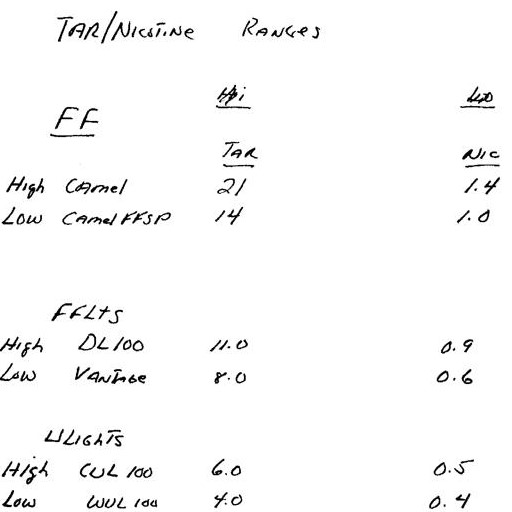 TAR/NICOTINE RANGES
FF
TAR NIC
High CAmel 21 1.4
Low CAmel FFSP 14 1.0
FFLTS
High DL100 11.0 0.9
Low VANTAGE 8.0 0.6
ULIGHTS
High CUL 100 6.0 0.5
Low WUL 100 4.0 0.4